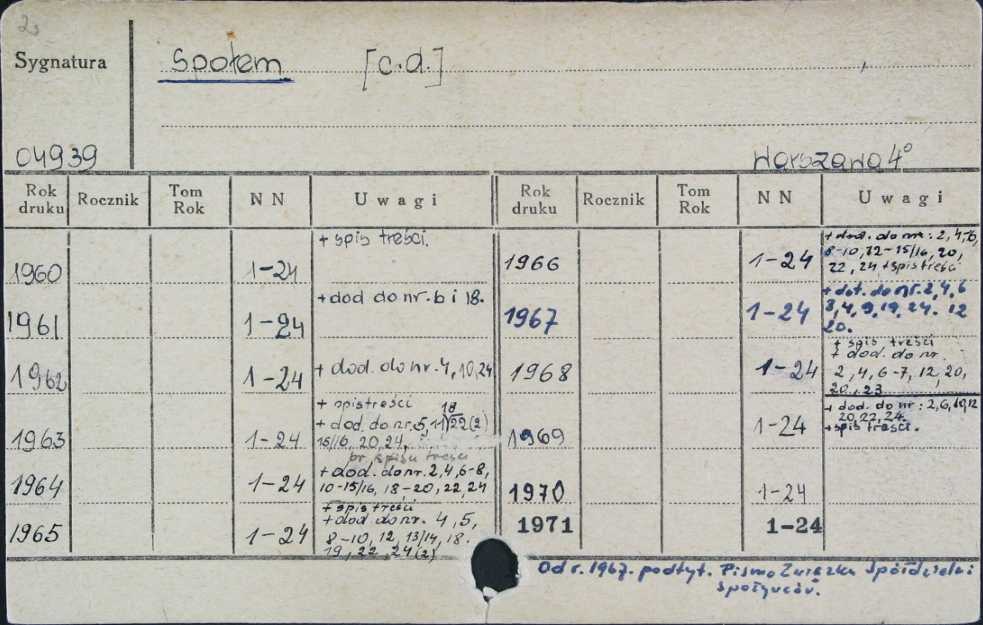 Sygnatura Społem [c.d.]
04939 Warszawa 4°
Rok druku Rocznik Tom Rok NN Uwagi Rok druku Rocznik Tom Rok NN Uwagi
1960 1-24 + spis treści.
1961 1-24 + dod do nr. 6 i 18.
1962 1-24 + dod. do nr. 4, 10, 24
1963 1-24 + spis treści
+ dod. do nr. 5, 11 18 22(2)
15/16, 20, 24.
br. spisu treści
1964 1-24 + dod. do nr. 2, 4, 6-8,
10-15/16, 18-20, 22, 24
1965 1-24 + spis treści
+ dod. do nr. 4, 5,
8-10, 12, 13/14, 18.
19, 22, 24(2)
1966 1-24 + dod. do nr: 2, 4, 6,
8-10, 12-15/16, 20,
22, 24 + spis treści
1967 1-24 + dot. do nr. 2, 4, 6
8, 4, 9, 19, 24. 12
20.
1968 1-24 + spis treści
+ dod. do nr.
2, 4, 6-7, 12, 20,
20, 23
1969 1-24 + dod. do nr: 2, 6, 10, 12
20, 22, 24.
+ spis treści.
1970 1-24
1971 1-24
Od r. 1967. podtyt. Pismo Związku Spółdzielni
Spożywców.